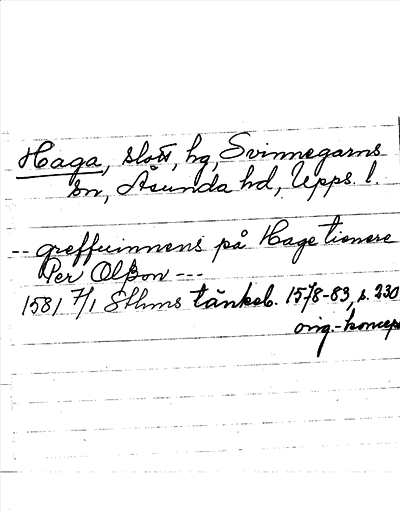 Haga, slott, hg, Svinnegarns
sn, Åsunda hd, Upps. l.
-- greffuinnens på Hage tienere
Per Olßon ---
1581 7/1 Sthms tänkeb. 1578-83, s. 230
orig.-koncept